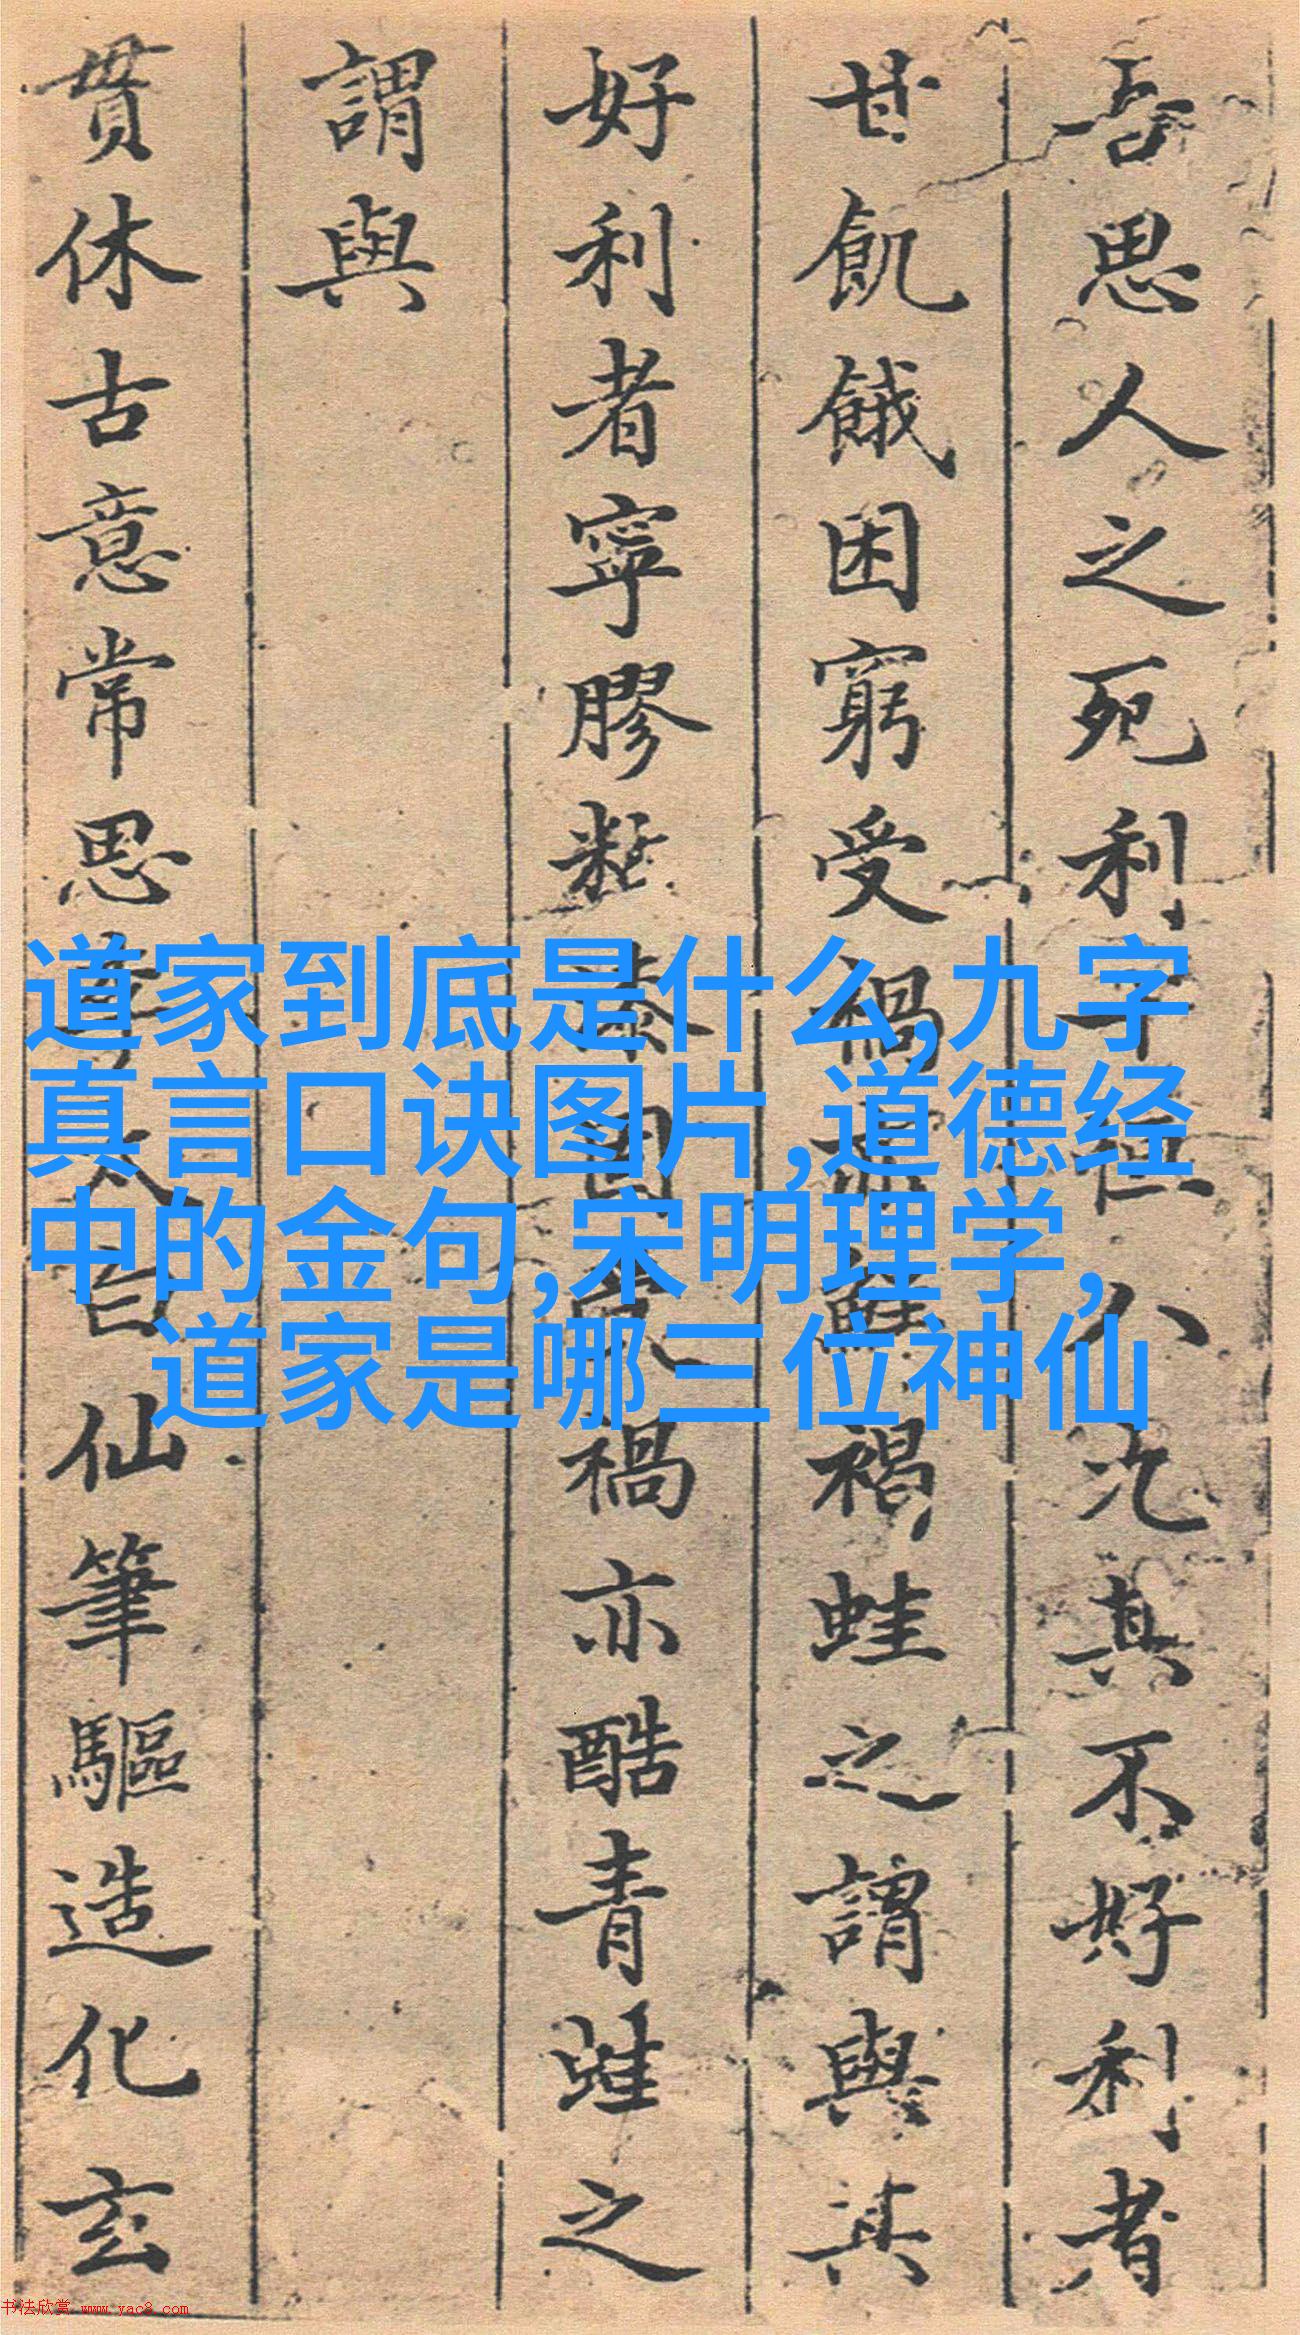 吾思人之死利十恒八九真不好利者
甘飢餓困窮受禍亦鮮禍蛙之謂與其
好利者寧膠固禍亦酷青蛙之
謂與
貫休古意常思李太白仙筆驅造化玄
道家到底是什么,九字
真言口诀图片,道德经
中的金句,宋明理学,
道家是哪三位神仙
书法欣赏 www.yac8.com